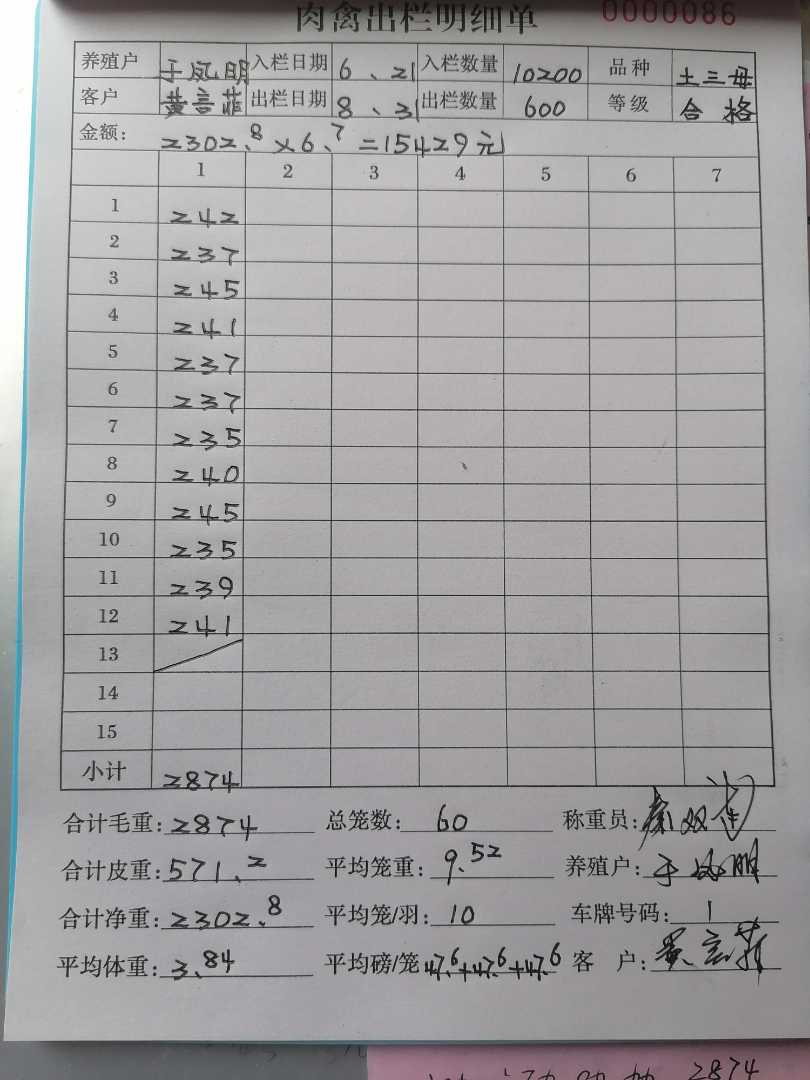 肉禽出栏明细单 0000086
养殖户 于凤明 入栏日期 6、21 入栏数量 10200 品种 土三母
客户 黄言菲 出栏日期 8、31 出栏数量 600 等级 合格
金额: 2302.8×6.7=15429元
1 2 3 4 5 6 7
1 242
2 237
3 245
4 241
5 237
6 237
7 235
8 240
9 245
10 235
11 239
12 241
13
14
15
小计 2874
合计毛重: 2874 总笼数: 60 称重员: 秦双
合计皮重: 571.2 平均笼重: 9.52 养殖户: 于凤明
合计净重: 2302.8 平均笼/羽: 10 车牌号码: 1
平均体重: 3.84 平均磅/笼 47.6+47.6+47.6 客 户: 黄言菲
2874